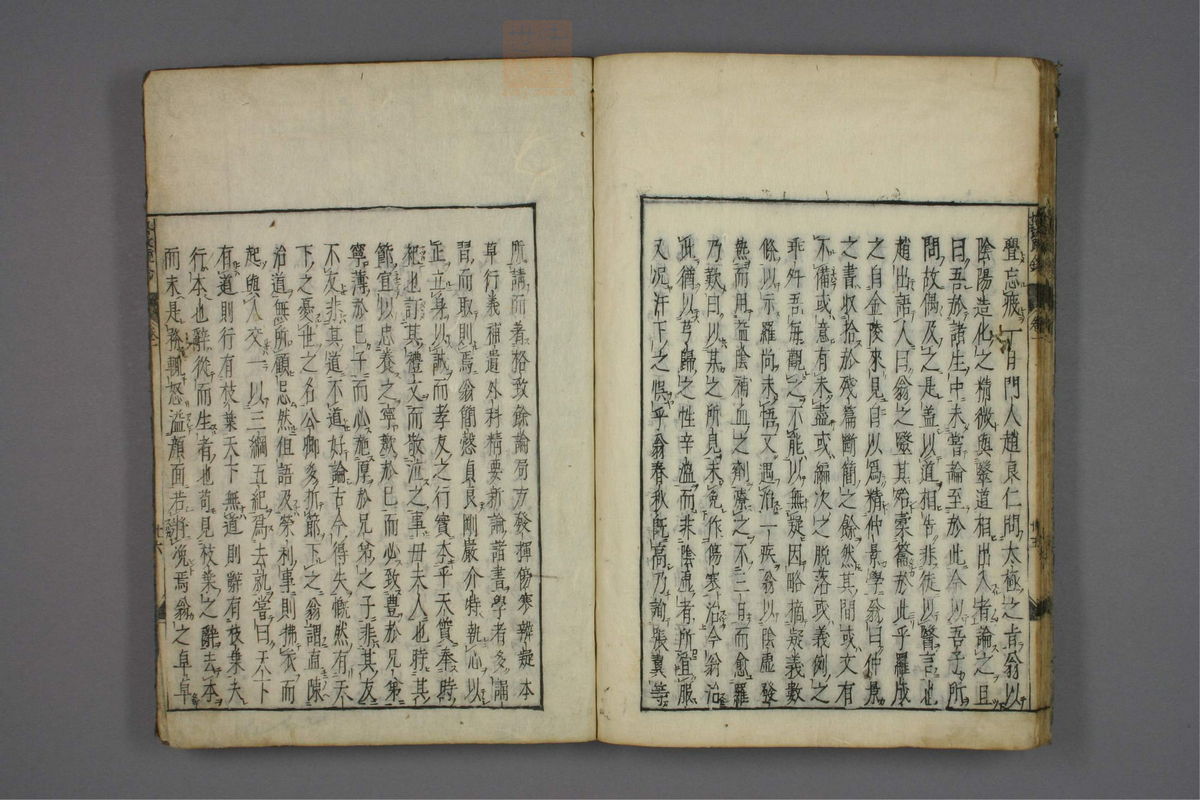 覺忘疲一日門人趙良仁問太極之旨翁以
陰陽造化之精微與醫道相出入者論之且
曰吾於諸生中未嘗論至於此今以吾子所
問故偶及之是蓋以道相告非徒以醫言也
趙出語人曰翁之醫其殆橐籥於此乎羅成
之自金陵來見自以爲精仲景學翁曰仲景
之書收拾於殘篇斷簡之餘然其間或文有
不備或意有未盡或編次之脫落或義例之
乖舛吾每觀之不能以無疑因略摘疑義數
條以示羅尚未悟又遇治一疾翁以陰虛發
熱而用益陰補血之劑療之不三日而愈羅
乃歎曰以某之所見未免作傷寒治今翁治
此猶以芎歸之性辛溫而非陰虛者所宜服
又况汗下之誤乎翁春秋既高乃詢張翼等
所講而著格致餘論局方發揮傷寒辨疑本
草衍義補遺外科精要新論諸書學者多誦
習而取則焉翁簡慤貞良剛嚴介特執心以
正立身以誠而孝友之行實本乎天質奉時
祀也訂其禮文而敬泣之事母夫人也時其
節宜以忠養之寧歉於己而必致豐於兄弟
寧薄於己子而必施厚於兄弟之子非其友
不友非其道不道好論古今得失慨然有天
下之憂世之名公卿多折節下之翁謂直陳
治道無所顧忌然但語及榮利事則拂衣而
起與人交一以三綱五紀爲去就嘗曰天下
有道則行有枝葉天下無道則辭有枝葉夫
行本也辭從而生者也苟見枝葉之辭去本
而未是務輒怒溢顏面若將浼焉翁之卓卓